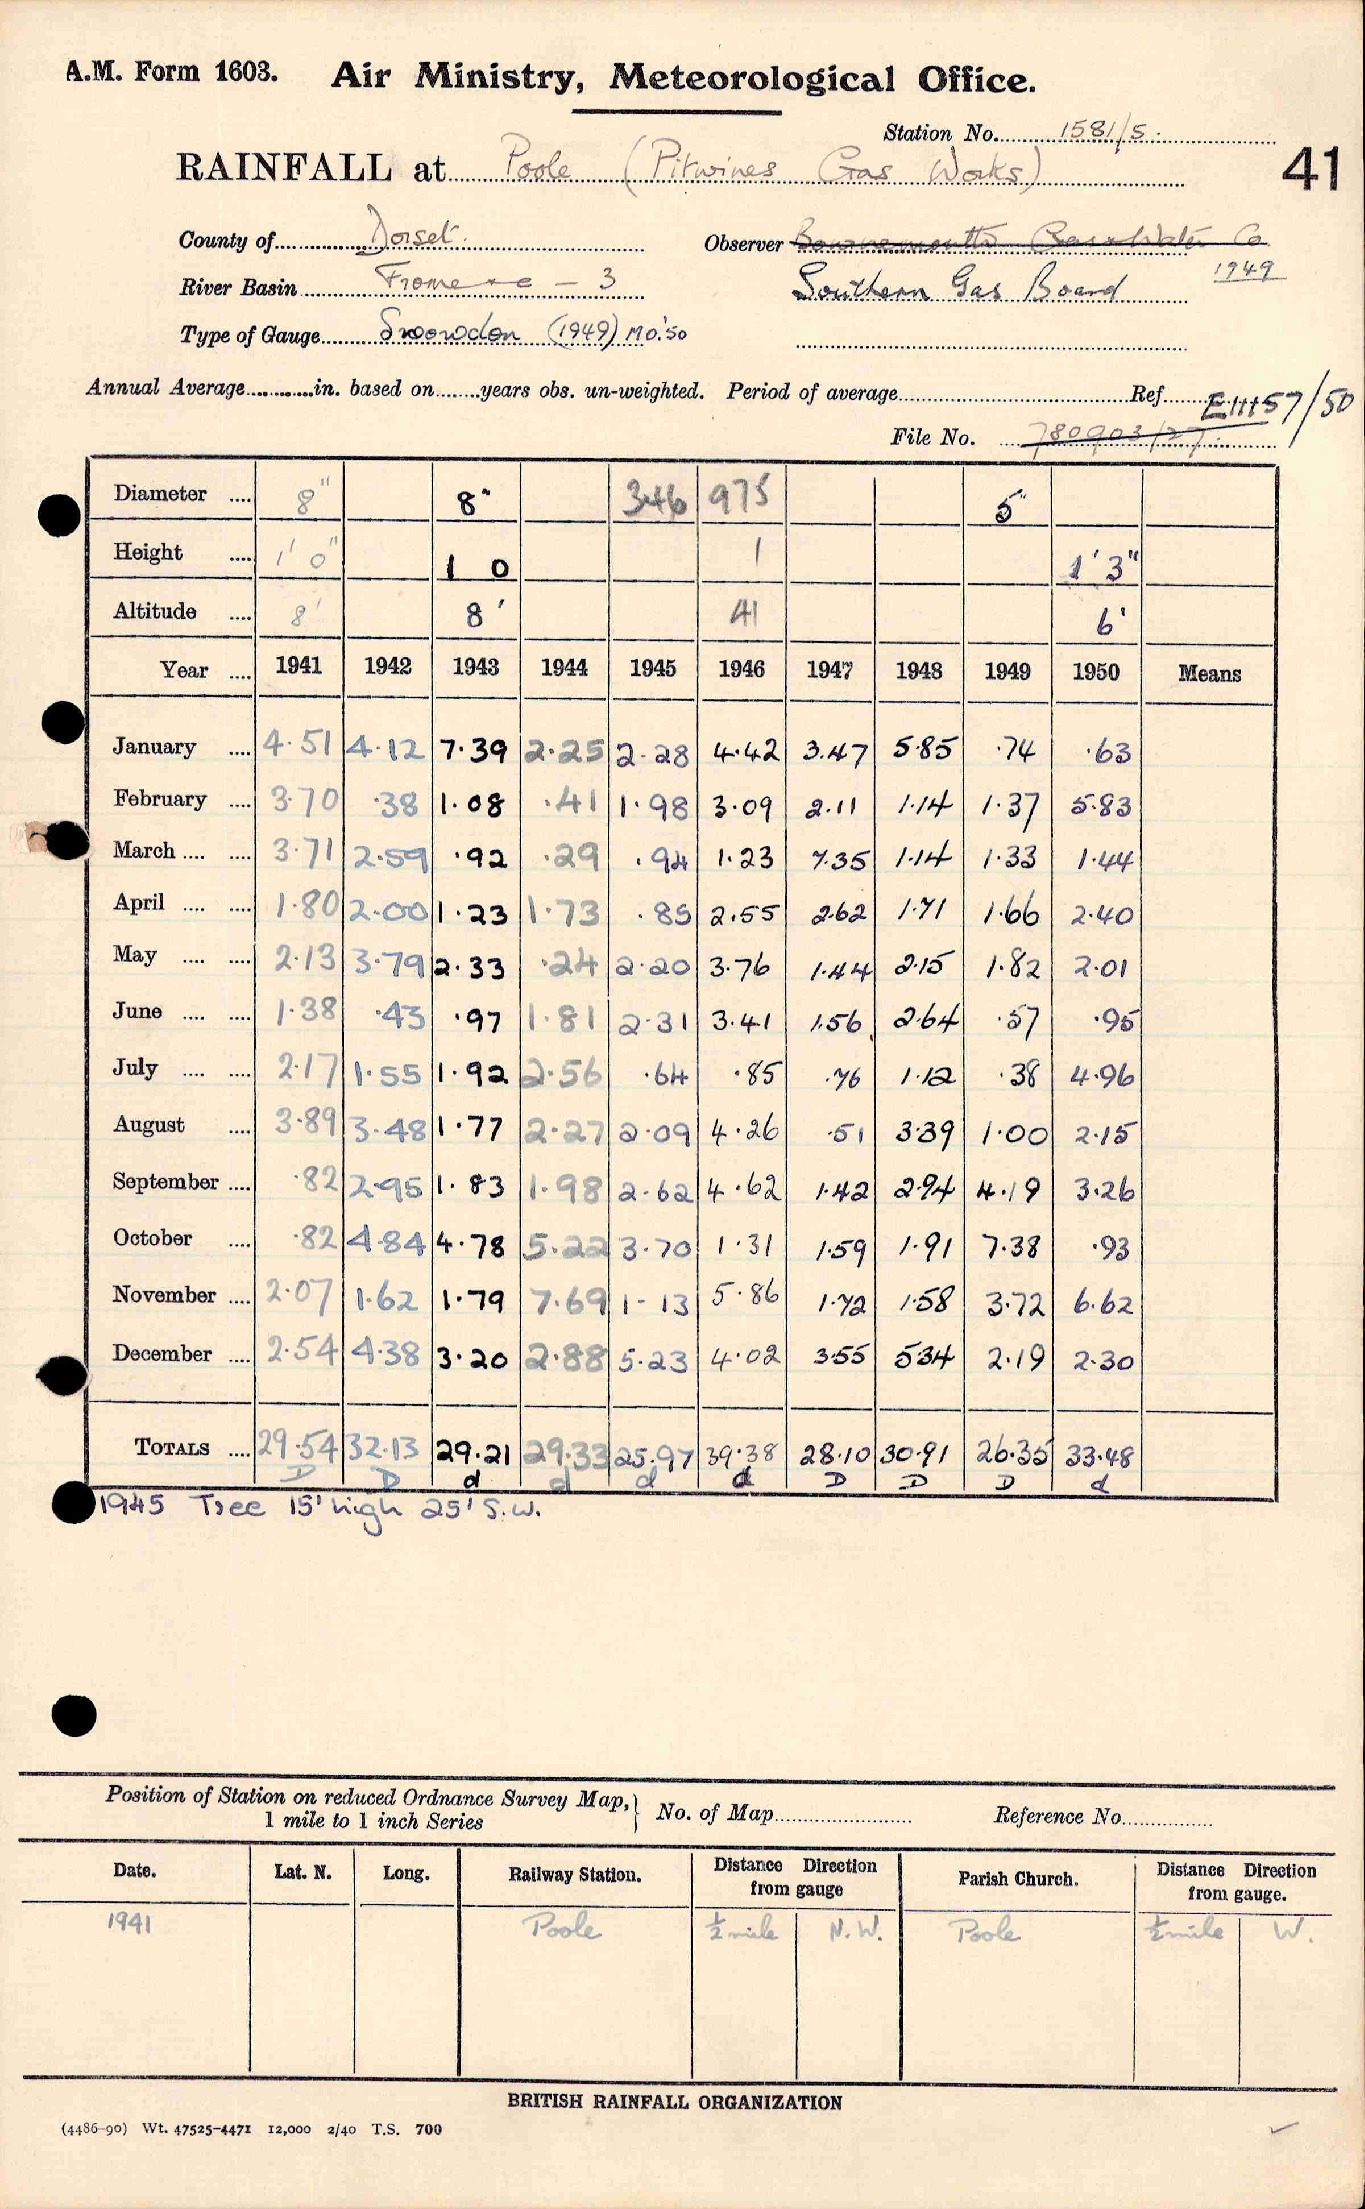 A.M. Form 1603. Air Ministry, Meteorological Office.
Station No. 1581/5.
RAINFALL at Poole (Pitwines Gas Works) 41
County of Dorset. Observer Bournemouth Gas & Water Co
River Basin Frome – 3 Southern Gas Board 1949
Type of Gauge Snowdon (1949) MO.'50
Annual Average in. based on years obs. un-weighted. Period of average Ref. E11157/50
File No. 780903/27.
Diameter .... 8" 8" 346 975 5"
Height .... 1' 0" 1 0 1 1'3"
Altitude .... 8' 8' 41 6'
Year .... 1941 1942 1943 1944 1945 1946 1947 1948 1949 1950 Means
January .... 4.51 4.12 7.39 2.25 2.28 4.42 3.47 5.85 .74 .63
February .... 3.70 .38 1.08 .41 1.98 3.09 2.11 1.14 1.37 5.83
March .... .... 3.71 2.59 .92 .29 .94 1.23 7.35 1.14 1.33 1.44
April .... .... 1.80 2.00 1.23 1.73 .85 2.55 2.62 1.71 1.66 2.40
May .... .... 2.13 3.79 2.33 .24 2.20 3.76 1.44 2.15 1.82 2.01
June .... .... 1.38 .43 .97 1.81 2.31 3.41 1.56 2.64 .57 .95
July .... .... 2.17 1.55 1.92 2.56 .64 .85 .76 1.12 .38 4.96
August .... 3.89 3.48 1.77 2.27 2.09 4.26 .51 3.39 1.00 2.15
September .... .82 2.95 1.83 1.98 2.62 4.62 1.42 2.94 4.19 3.26
October .... .82 4.84 4.78 5.22 3.70 1.31 1.59 1.91 7.38 .93
November .... 2.07 1.62 1.79 7.69 1.13 5.86 1.72 1.58 3.72 6.62
December .... 2.54 4.38 3.20 2.88 5.23 4.02 3.55 5.34 2.19 2.30
TOTALS .... 29.54 32.13 29.21 29.33 25.97 39.38 28.10 30.91 26.35 33.48
D D d d d d D D D d
1945 Tree 15' high 25' S.W.
Position of Station on reduced Ordnance Survey Map,
1 mile to 1 inch Series
No. of Map Reference No.
Date. Lat. N. Long. Railway Station. Distance Direction from gauge Parish Church. Distance Direction from gauge.
1941 Poole ½ mile N.W. Poole ½ mile W.
BRITISH RAINFALL ORGANIZATION
(4486-90) Wt. 47525-4471 12,000 2/40 T.S. 700